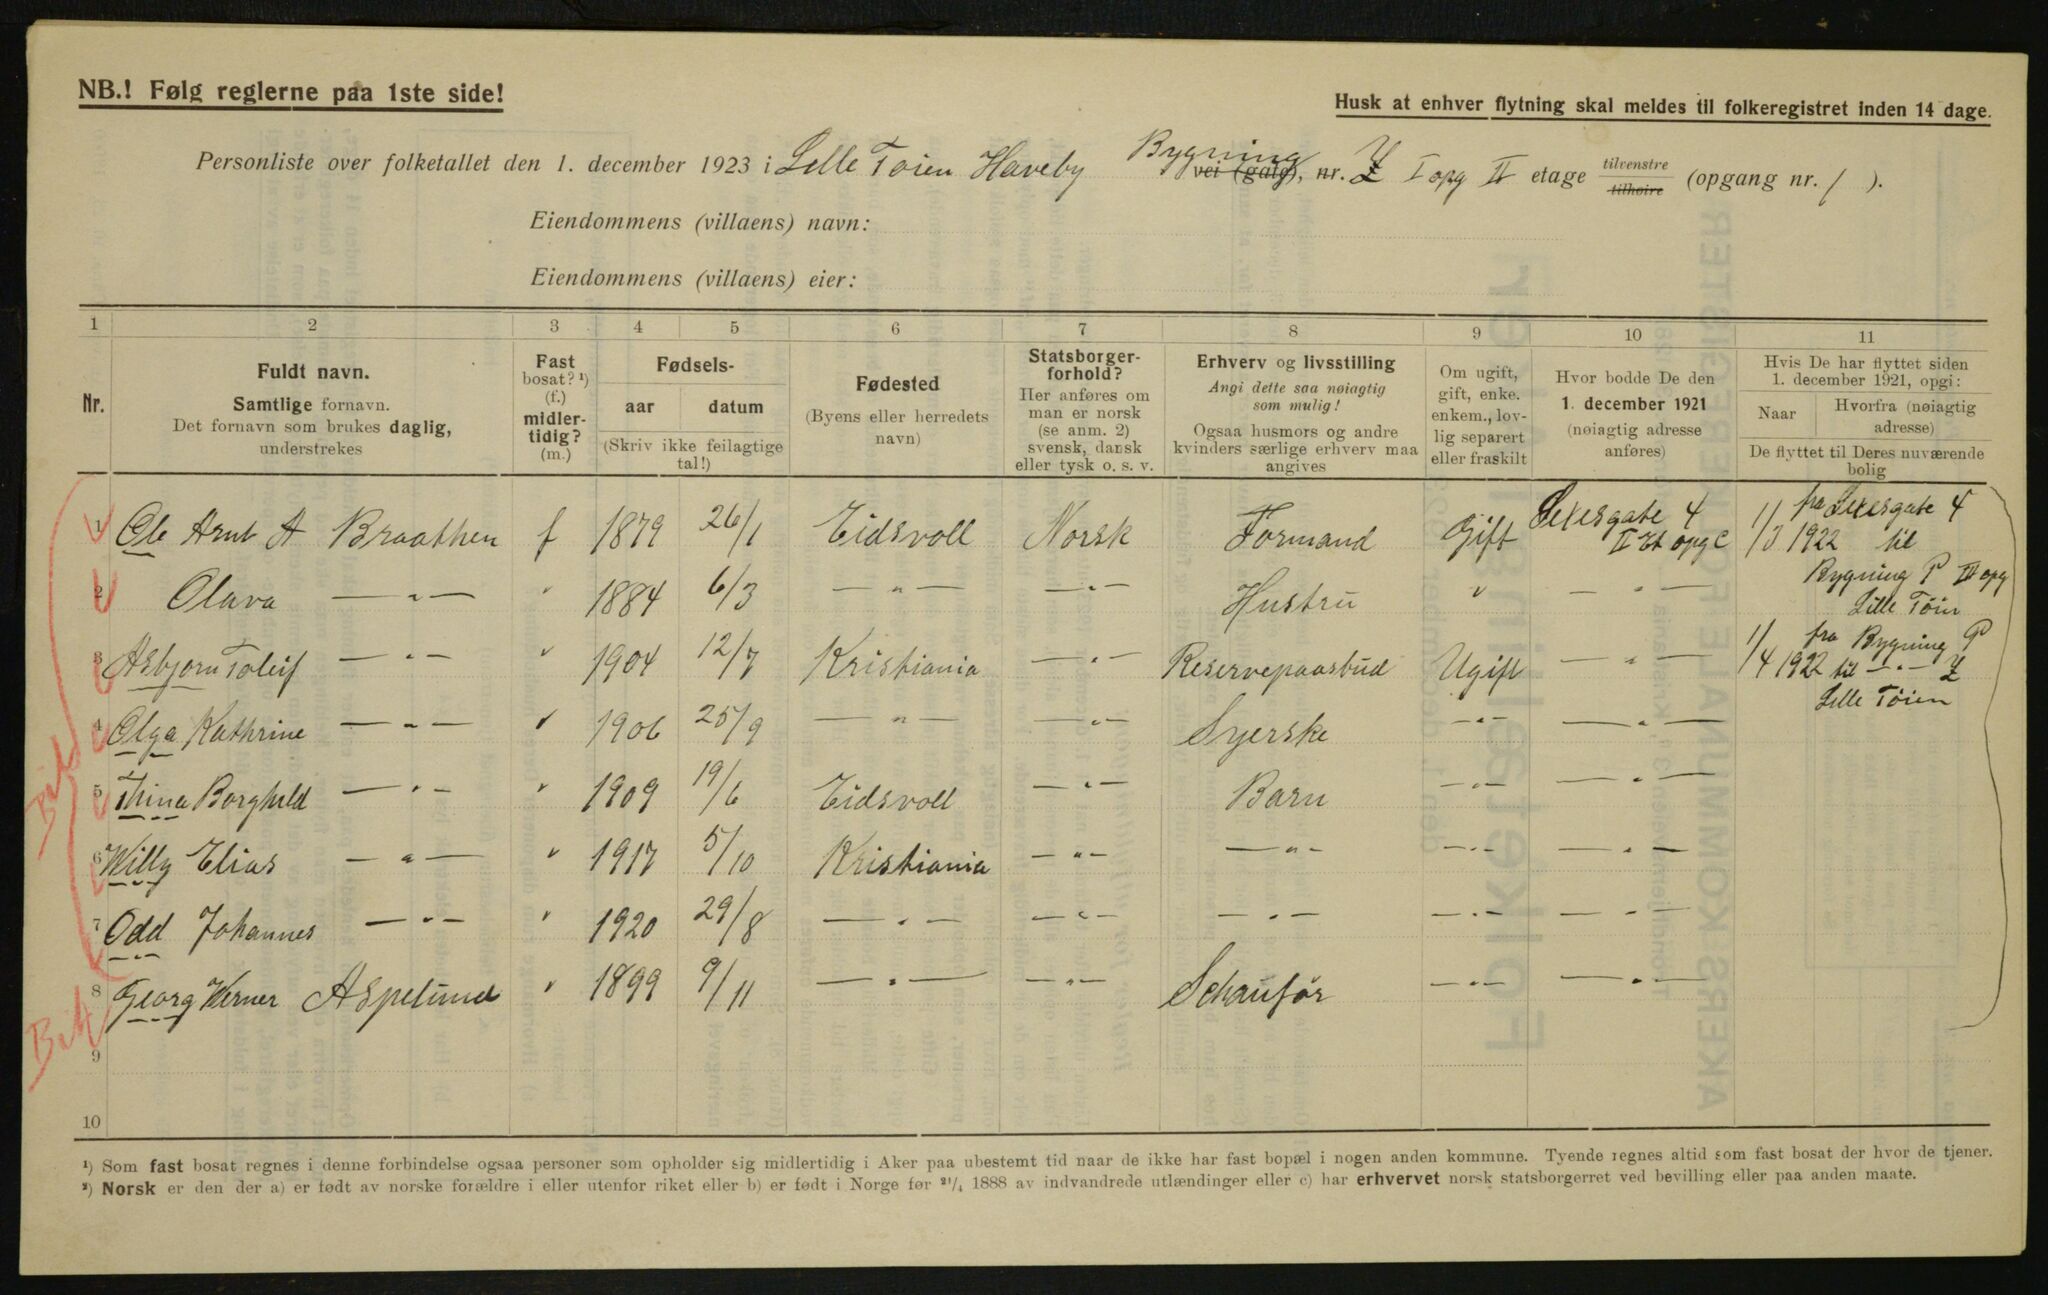 NB.! Følg reglerne paa 1ste side!
Husk at enhver flytning skal meldes til folkeregistret inden 14 dage.
Personliste over folketallet den 1. december 1923 i Lille Tøien Haveby Bygning vei (gate), nr. Z I opg II etage tilvenstre tilhøire (opgang nr. 1 ).
Eiendommens (villaens) navn:
Eiendommens (villaens) eier:
1 2 3 4 5 6 7 8 9 10 11
Nr.
Fuldt navn.
Samtlige fornavn.
Det fornavn som brukes daglig,
understrekes
Fast
bosat? ¹)
(f.)
midler-
tidig?
(m.)
Fødsels-
aar datum
(Skriv ikke feilagtige
tal!)
Fødested
(Byens eller herredets
navn)
Statsborger-
forhold?
Her anføres om
man er norsk
(se anm. 2)
svensk, dansk
eller tysk o. s. v.
Erhverv og livsstilling
Angi dette saa nøiagtig
som mulig!
Ogsaa husmors og andre
kvinders særlige erhverv maa
angives
Om ugift,
gift, enke.
enkem., lov-
lig separert
eller fraskilt
Hvor bodde De den
1. december 1921
(nøiagtig adresse
anføres)
Hvis De har flyttet siden
1. december 1921, opgi:
Naar
Hvorfra (nøiagtig
adresse)
De flyttet til Deres nuværende
bolig
1 Ole Arnt A Braathen f 1879 26/1 Eidsvoll Norsk Formand Gift Sexesgate 4 II Et opg C 1/3 1922 fra Sexesgate 4 til
2 Olava — " — " 1884 6/3 — " — — " — Hustru " — " — Bygning P III opg
Lille Tøien
3 Asbjørn Toleif — " — " 1904 12/7 Kristiania — " — Reservepaasbud Ugift — " — 1/4 1922 fra Bygning P til — " — Z
Lille Tøien
4 Olga Kathrine — " — " 1906 25/9 — " — — " — Syerske — " — — " —
5 Thina Borghild — " — " 1909 19/6 Eidsvoll — " — Barn — " — — " —
6 Willy Elias — " — " 1917 5/10 Kristiania — " — — " — — " — — " —
7 Odd Johannes — " — " 1920 29/8 — " — — " — — " — — " — — " —
8 Georg Werner Aspelund " 1899 9/11 — " — — " — Schaufør — " — — " —
9
10
¹) Som fast bosat regnes i denne forbindelse ogsaa personer som opholder sig midlertidig i Aker paa ubestemt tid naar de ikke har fast bopæl i nogen anden kommune. Tyende regnes altid som fast bosat der hvor de tjener.
²) Norsk er den der a) er født av norske forældre i eller utenfor riket eller b) er født i Norge før ²¹/₄ 1888 av indvandrede utlændinger eller c) har erhvervet norsk statsborgerret ved bevilling eller paa anden maate.